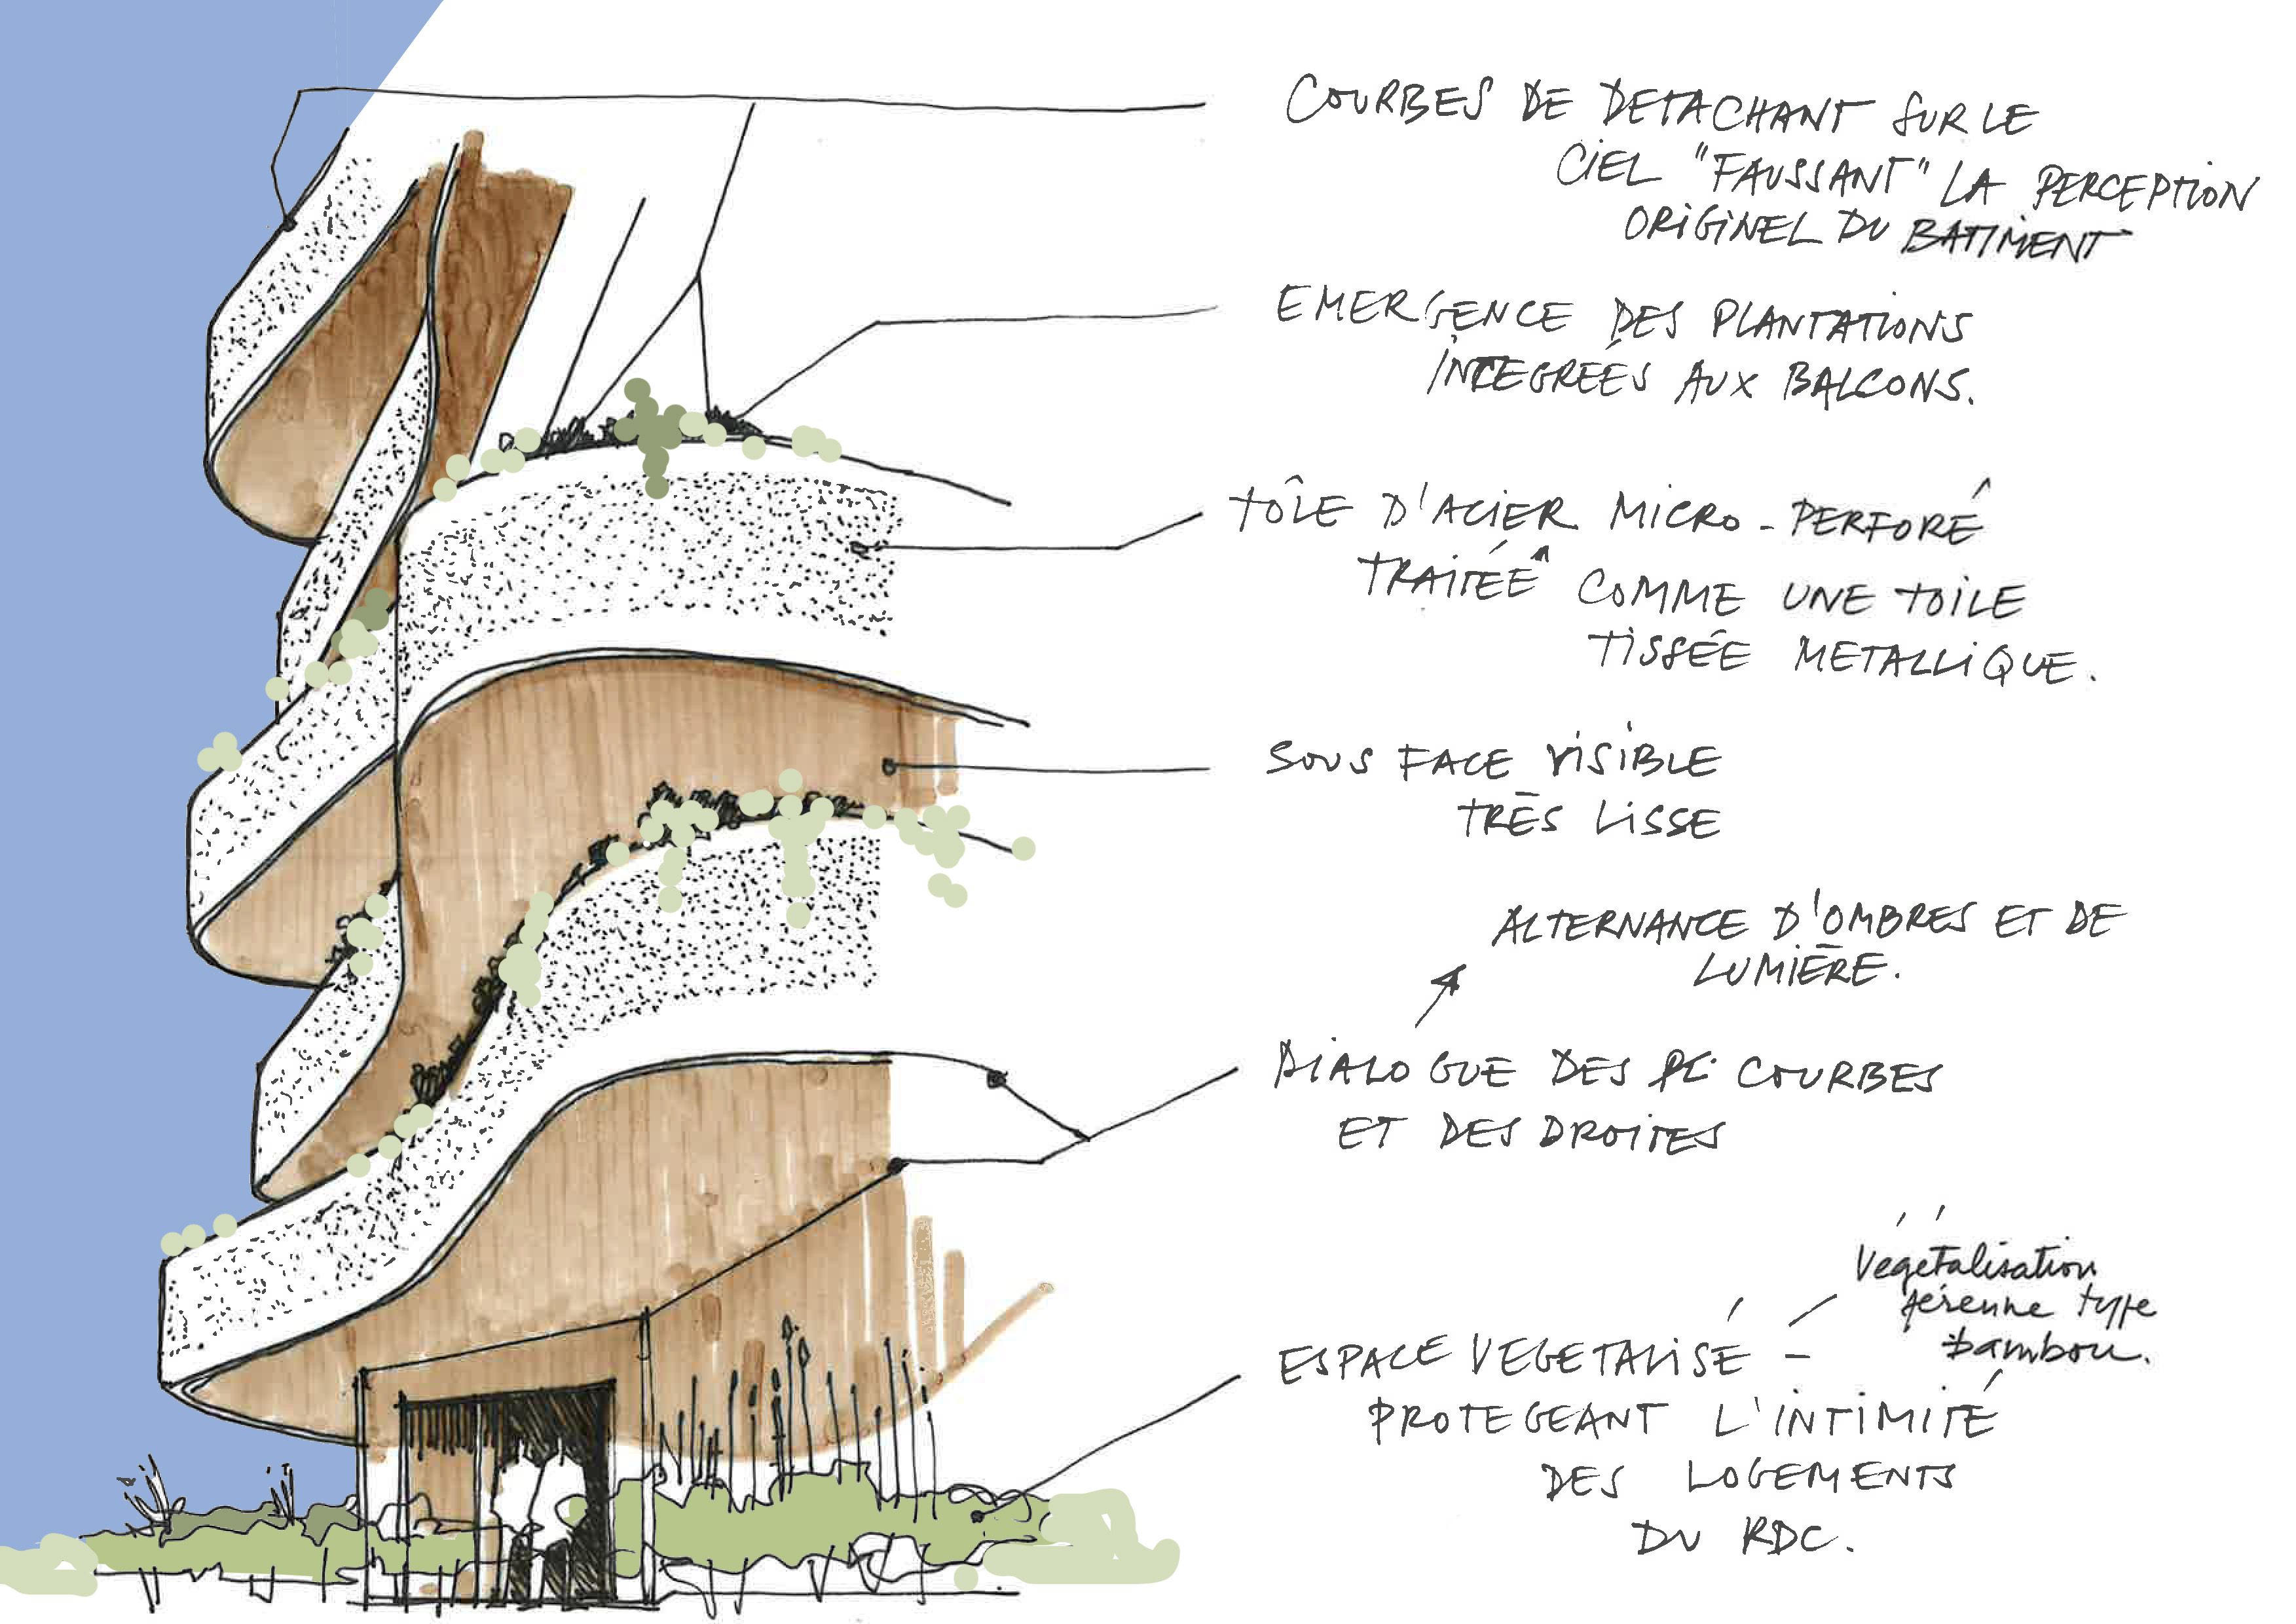 COURBES DE DETACHANT SUR LE
CIEL "FAUSSANT" LA PERCEPTION
ORIGINEL DU BATIMENT
EMERGENCE DES PLANTATIONS
INTEGREÉS AUX BALCONS.
TÔLE D'ACIER MICRO-PERFORÉ
TRAITÉE COMME UNE TOILE
TISSÉE METALLIQUE.
SOUS FACE VISIBLE
TRÈS LISSE
ALTERNANCE D'OMBRES ET DE
LUMIÈRE.
DIALOGUE DES COURBES
ET DES DROITES
Végétalisation
pérenne type
bambou.
ESPACE VEGETALISÉ -
PROTEGEANT L'INTIMITÉ
DES LOGEMENTS
DU RDC.